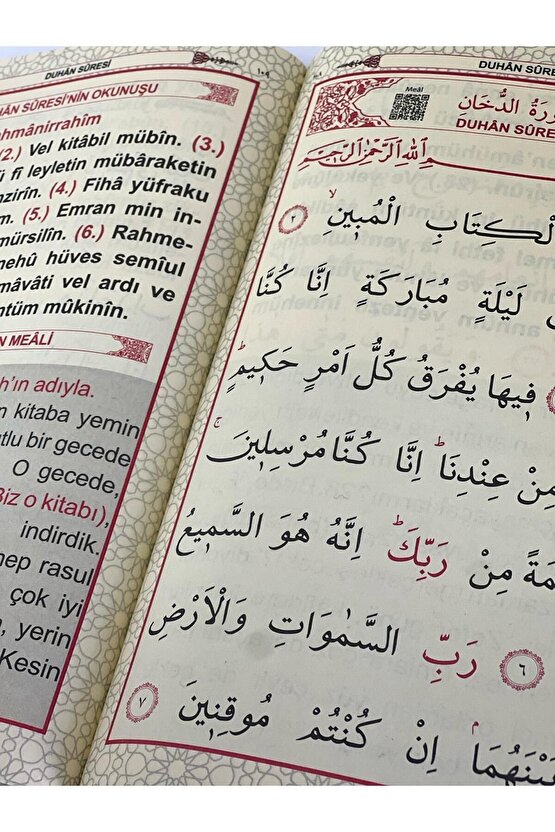 DUHÂN SÛRESİ
١٠٩
SÛRESİ'NİN OKUNUŞU
(2.) Vel kitâbil mübîn. (3.)
fî leyletin mübâraketin
(4.) Fîhâ yüfraku
(5.) Emran min in-
mürsilîn. (6.) Rahme-
hüves semîul
vel ardı ve
mûkinîn.
MEÂLİ
adıyla.
kitaba yemin
bir gecede
O gecede,
Biz o kitabı),
indirdik.
rasul
çok iyi
yerin
Kesin
DUHÂN SÛRE
Meâl
سُورَةُ الدُّخَانِ
DUHÂN SÛRE
بِسْمِ اللّٰهِ الرَّحْمٰنِ الرَّحِيمِ
الْكِتَابِ الْمُبِينِ ٢
لَيْلَةٍ مُبَارَكَةٍ اِنَّا كُنَّا
فِيهَا يُفْرَقُ كُلُّ اَمْرٍ حَكِيمٍ
مِنْ عِنْدِنَا اِنَّا كُنَّا مُرْسِلِينَ
مِنْ رَبِّكَ اِنَّهُ هُوَ السَّمِيعُ
٦ رَبِّ السَّمٰوَاتِ وَالْاَرْضِ
اِنْ كُنْتُمْ مُوقِنِينَ ٧